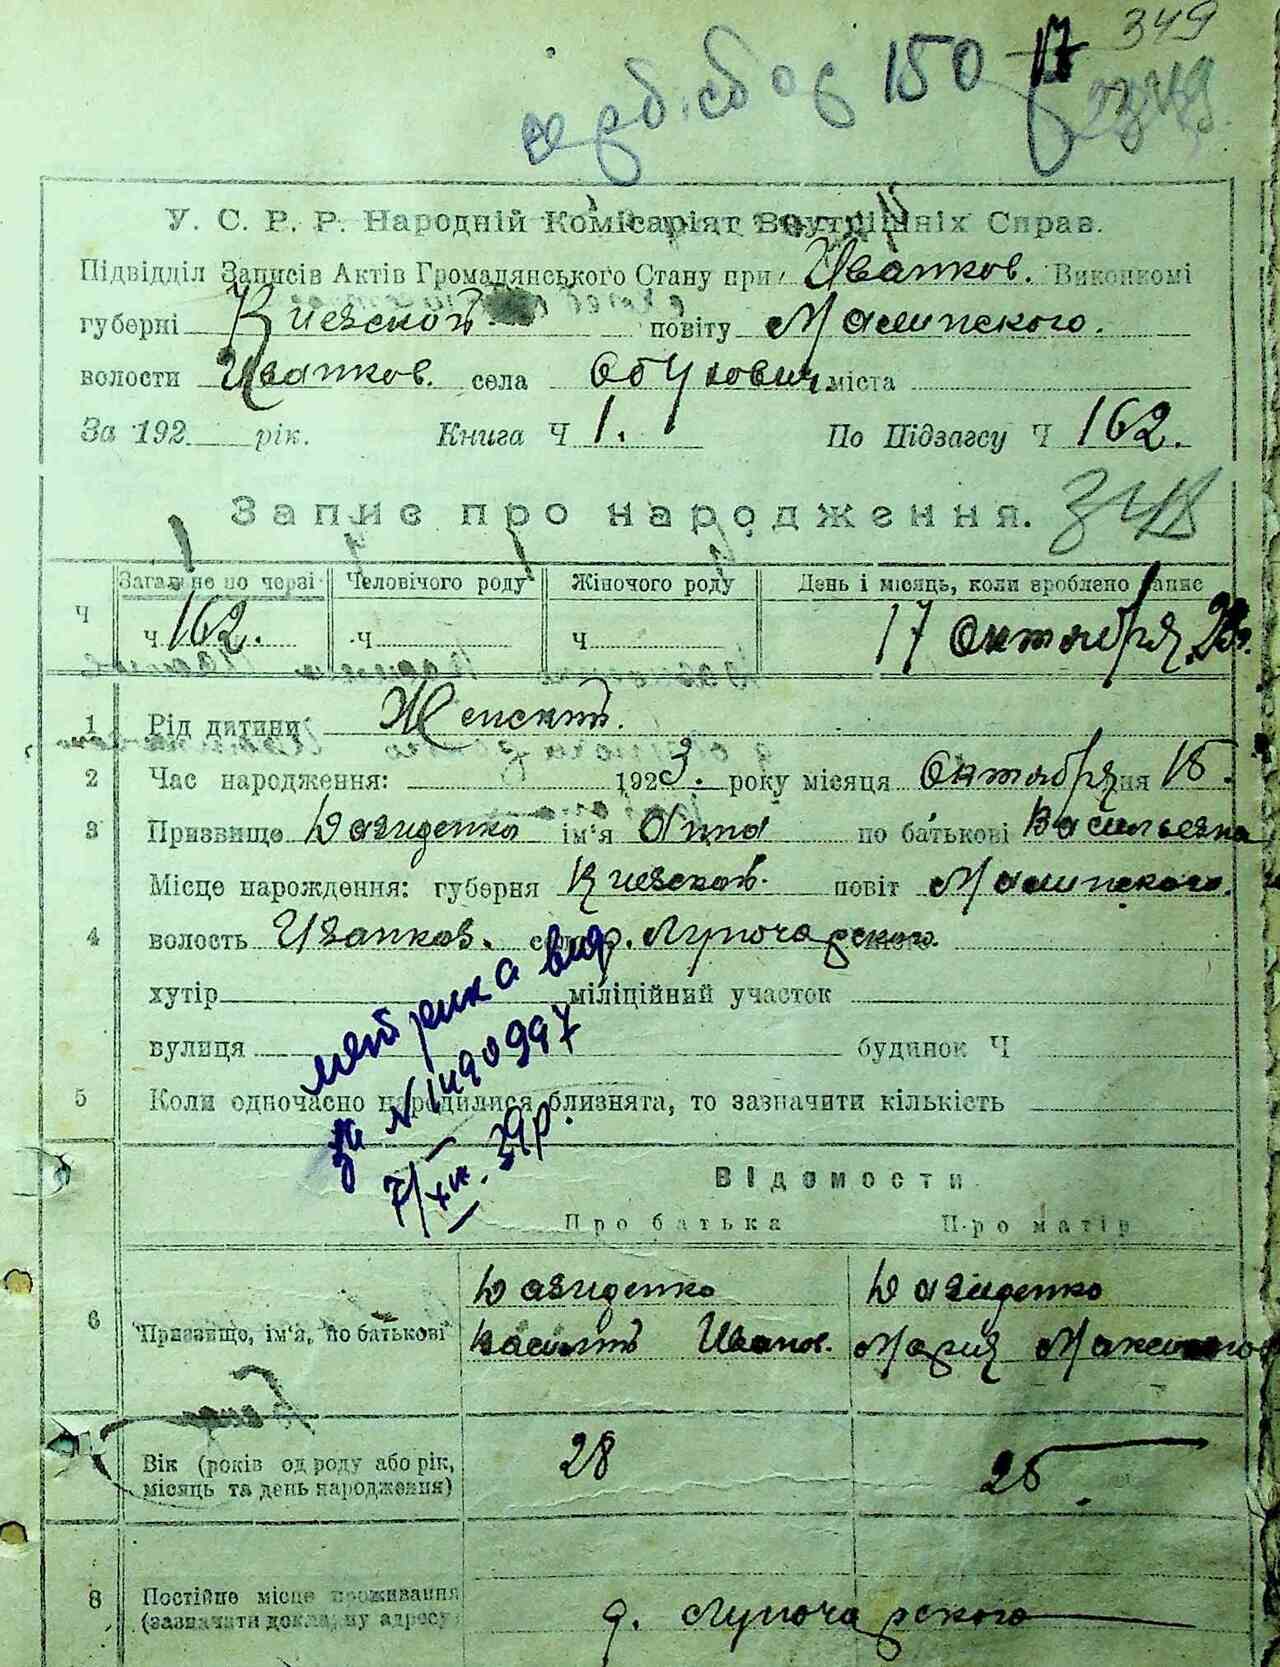 герб. сбор 150 17 349
У. С. Р. Р. Народній Комісаріят Внутрішніх Справ.
Підвідділ Записів Актів Громадянського Стану при Иванков. Виконкомі
губерні Киевской повіту Малинского.
волости Иванков. села Обуховичи міста
За 192 рік. Книга Ч 1. По Підзагсу Ч 162.
Запис про народження. 348
Ч Загальне по черзі Человічого роду Жіночого роду День і місяць, коли зроблено запис
ч 162. Ч Ч 17 Октября 23г.
1 Рід дитини Женский.
2 Час народження: 1923. року місяця Октября дня 15.
3 Призвище Давиденко ім'я Анна по батькові Васильевна
Місце народження: губерня Киевской. повіт Малинского.
4 волость Иванков. село д. Луночарского
хутір міліційний участок
вулиця будинок Ч
5 Коли одночасно народилися близнята, то зазначити кількість
метрика вид.
за № 1490997
7/XII. 39р.
Відомости
Про батька Про матір
Давиденко Давиденко
6 Призвище, ім'я, по батькові Василий Иванов. Мария Максимов
Вік (років од роду або рік, місяць та день народження) 28 25
8 Постійне місце проживання
(зазначити докладну адресу) д. Луночарского